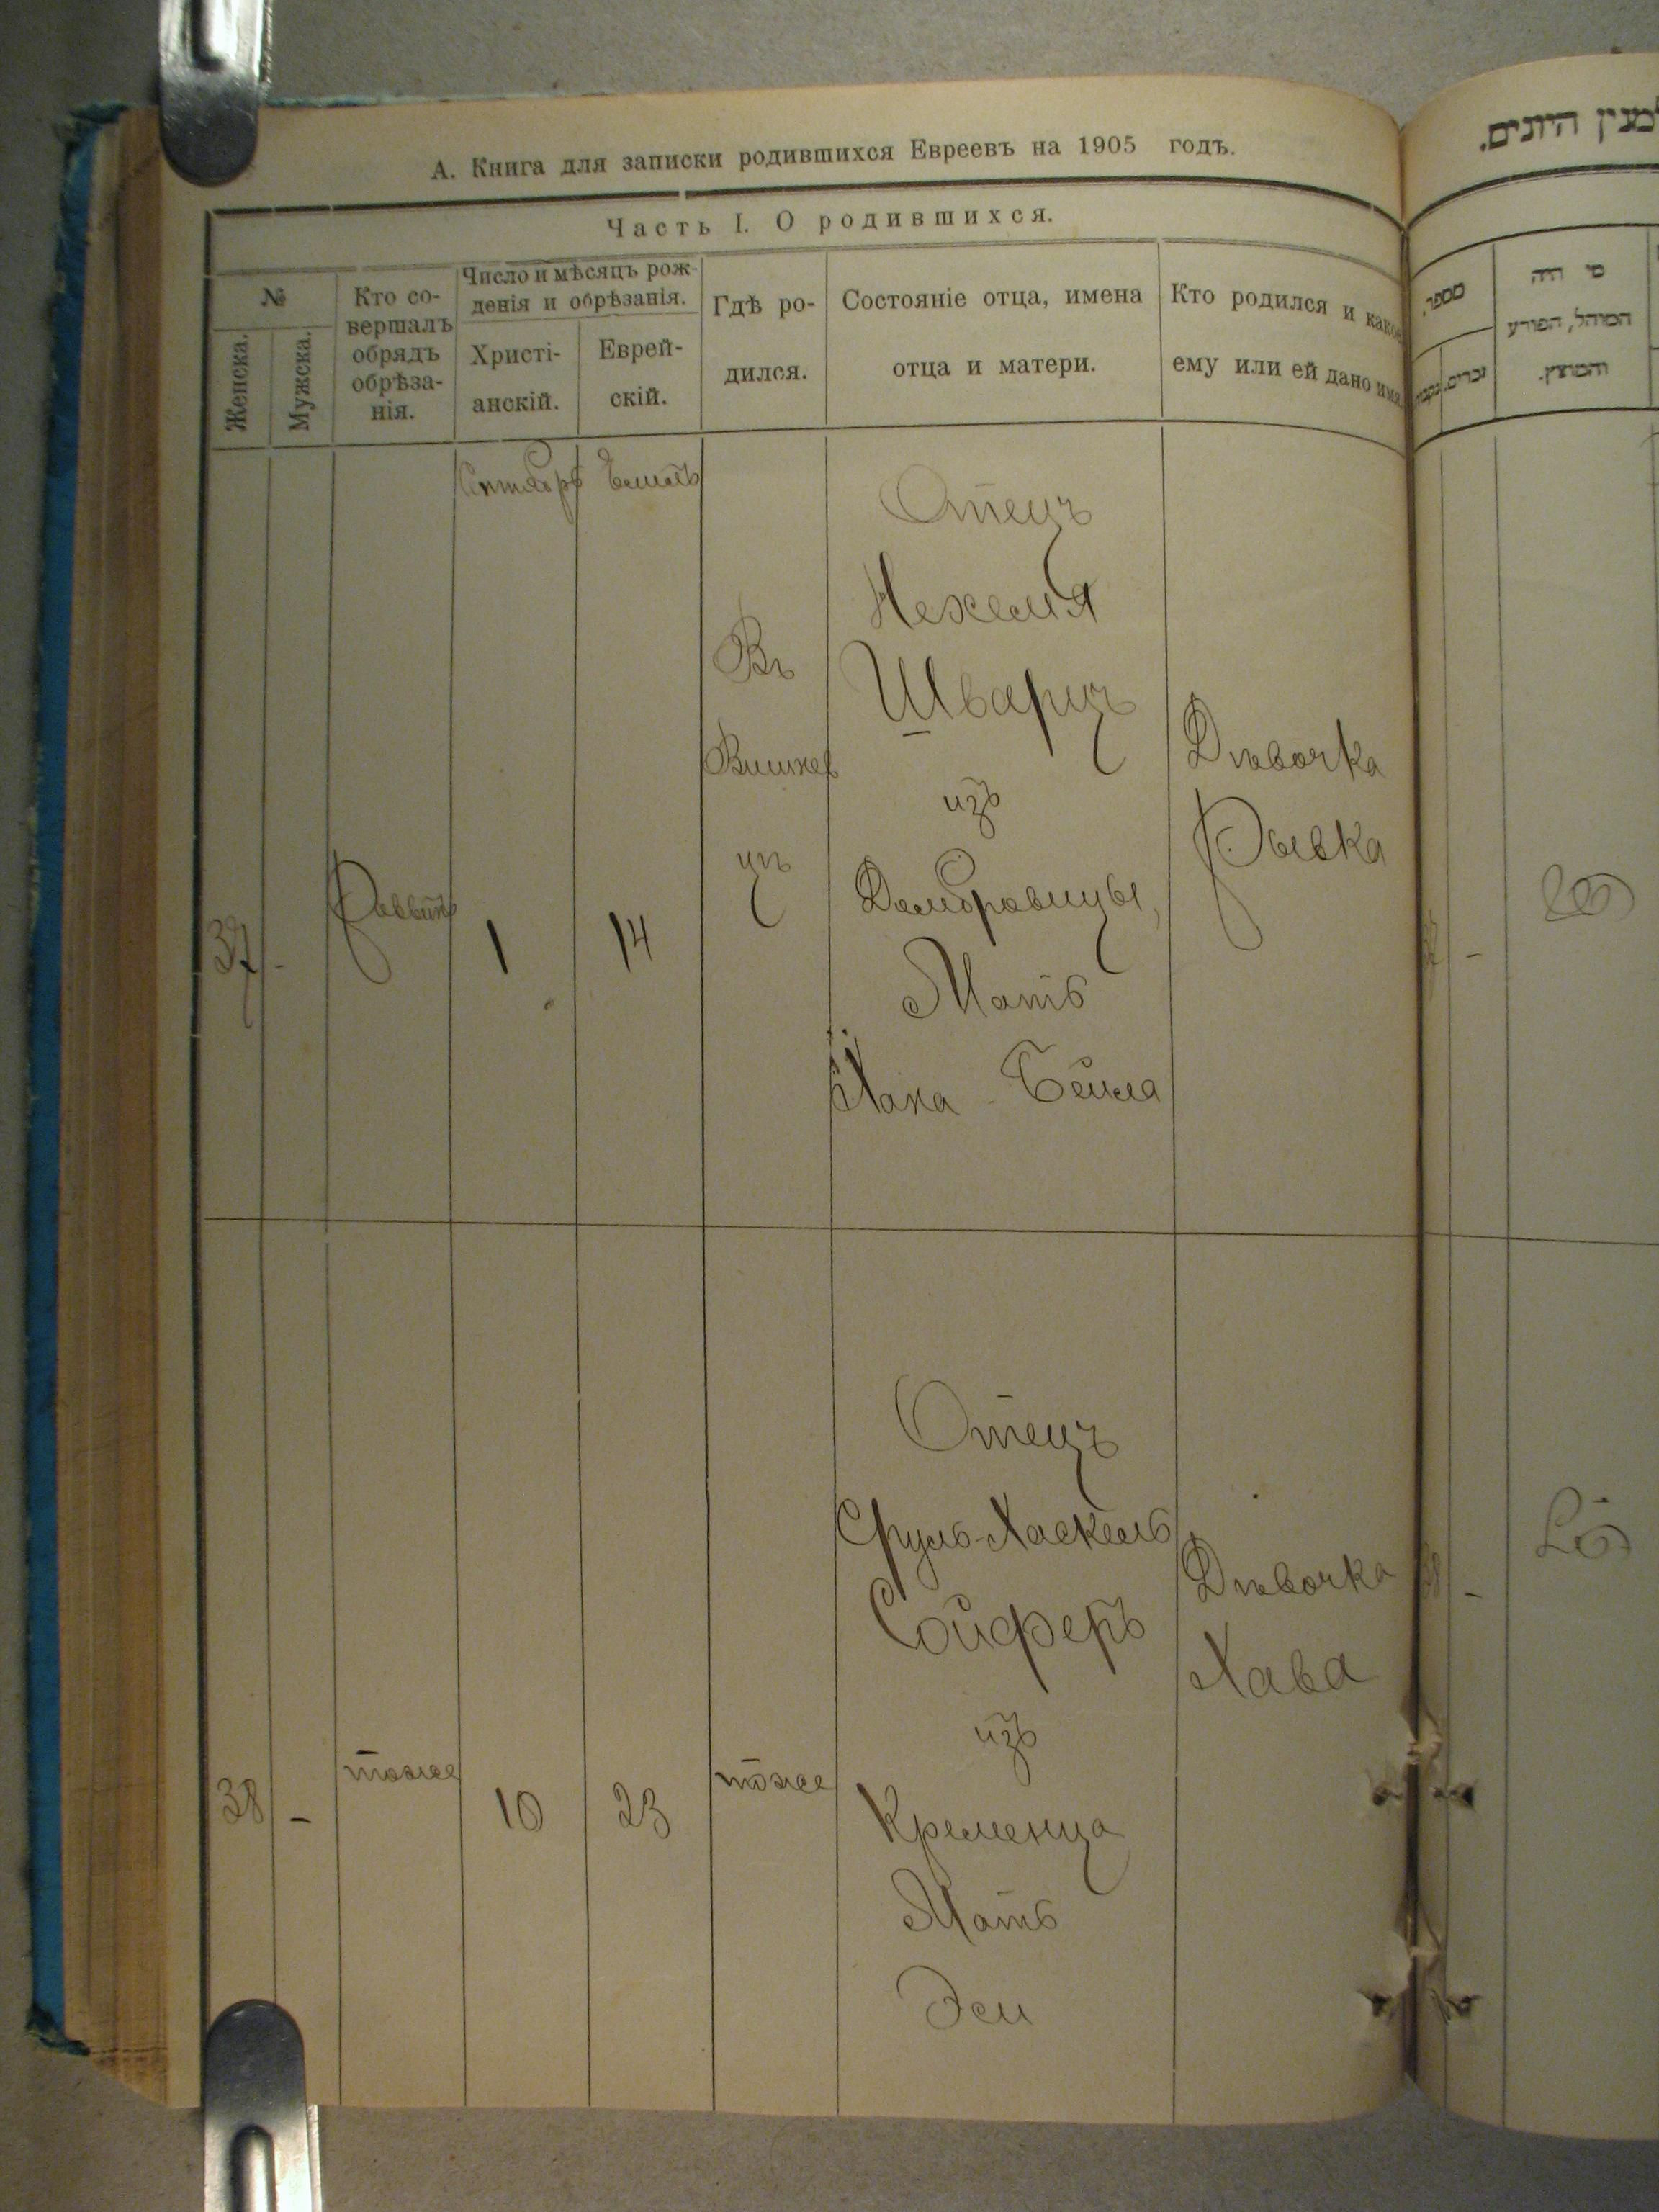 А. Книга для записки родившихся Евреевъ на 1905 годъ.
Часть I. О родившихся.
№
Женска.
Мужска.
Кто со-
вершалъ
обрядъ
обрѣза-
нія.
Число и мѣсяцъ рож-
денія и обрѣзанія.
Христі-
анскій.
Еврей-
скій.
Гдѣ ро-
дился.
Состояніе отца, имена
отца и матери.
Кто родился и какое
ему или ей дано имя.
Сентябрь
37
-
Раввинъ
1
14
Въ
Вишнев
цѣ
Отецъ
Нехемія
Шварцъ
изъ
Домбровицы,
Мать
Хана - Бейла
Дѣвочка
Рывка
38
-
тоже
10
23
тоже
Отецъ
Сруль-Хаскель
Сойферъ
изъ
Кременца
Мать
Эси
Дѣвочка
Хава
למנין היונים.
מספר.
זכרים.
נקבות
מי היה
המוהל, הפורע
והמוצץ.
37
-
38
-